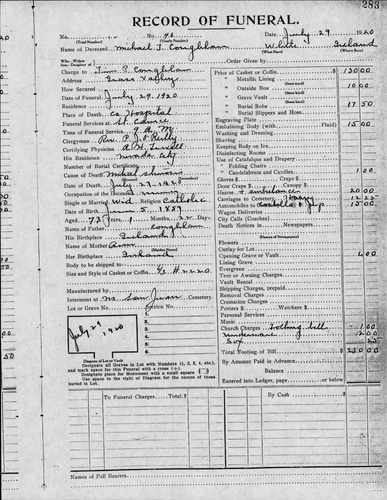 283
RECORD OF FUNERAL.
No. 92 July 29 1920
(Total Number) (Yearly Number) (Date of Entry)
Name of Deceased Michael J. Coughlan White Ireland
(What Race) (Where Born)
Order Given by
Charge to Tim P. Coughlan
Address Grass Valley
How Secured
Date of Funeral July 29, 1920
Place of Death Co. Hospital
Funeral Services at St. Canice
Time of Funeral Service 9 A M
Clergyman Rev. P. J. Reilly
Certifying Physician
His Residence Nevada City
Number of Burial Certificate
Cause of Death
Date of Death July 27, 1920
Occupation of the Deceased miner
Single or Married Wid Religion Catholic
Date of Birth June 5, 1847
Aged 73 Years, 1 Months, 22 Days
Name of Father Coughlan
His Birthplace Ireland
Name of Mother Ann
Her Birthplace Ireland
Body to be shipped to
Size and Style of Casket or Coffin
Manufactured by
Interment at San Juan Cemetery.
Lot or Grave No. Section No.
July 29, 1920
1.
2.
3.
4.
5.
6.
Diagram of Lot or Vault
Designate all Graves in Lot with Numbers (1, 2, 3, 4, etc.,)
and mark space for this Funeral with a cross (+).
Designate place of Monument with a small square
Use space to right of Diagram for the names of those
buried in Lot.
Price of Casket or Coffin $ 130 00
" Metallic Lining
" Outside Box 10 00
" Grave Vault
" Burial Robe 17 50
" Burial Slippers and Hose
Engraving Plate
Embalming Body (with Fluid) 15 00
Washing and Dressing
Shaving
Keeping Body on Ice
Disinfecting Rooms
Use of Catafalque and Drapery
" Folding Chairs
" Candelabrum and Candles 1 00
Gloves $ Crape $
Door Crape $ Hearse $
Hearse & Ambulance 20 00
Carriages to Cemetery 12 25
Automobiles to
Wagon Deliveries
City Calls (Coaches)
Death Notices in Newspapers
(Names of Newspapers)
Flowers
Outlay for Lot
Opening Grave or Vault 4 00
Lining Grave
Evergreen
Tent or Awning Charges
Vault Rental
Shipping Charges, prepaid
Removal Charges
Cremation Charges
Porters $ Watchers $
Personal Services
Music
Church Charges Tolling bell 1 00
Underwear
Sox
Total Footing of Bill
By Amount Paid in Advance
Balance
Entered into Ledger, page or below.
To Funeral Charges $ By Cash $
Names of Pall Bearers.